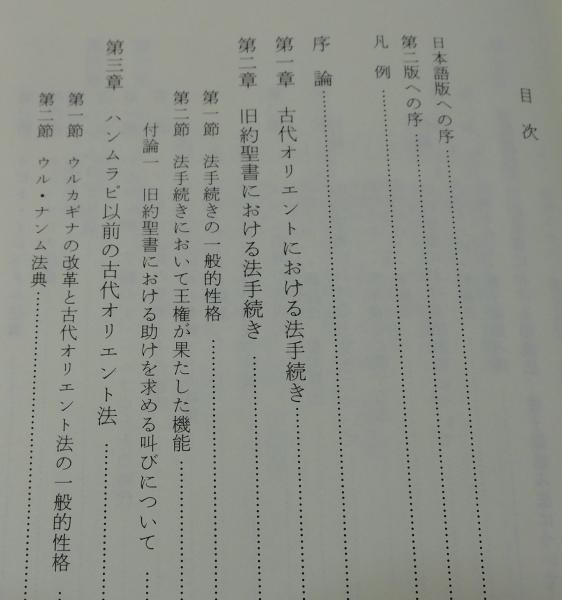 目次
日本語版への序
第二版への序
凡例
序論
第一章 古代オリエントにおける法手続き
第二章 旧約聖書における法手続き
第一節 法手続きの一般的性格
第二節 法手続きにおいて王権が果たした機能
付論一 旧約聖書における助けを求める叫びについて
第三章 ハンムラビ以前の古代オリエント法
第一節 ウルカギナの改革と古代オリエント法の一般的性格
第二節 ウル・ナンム法典